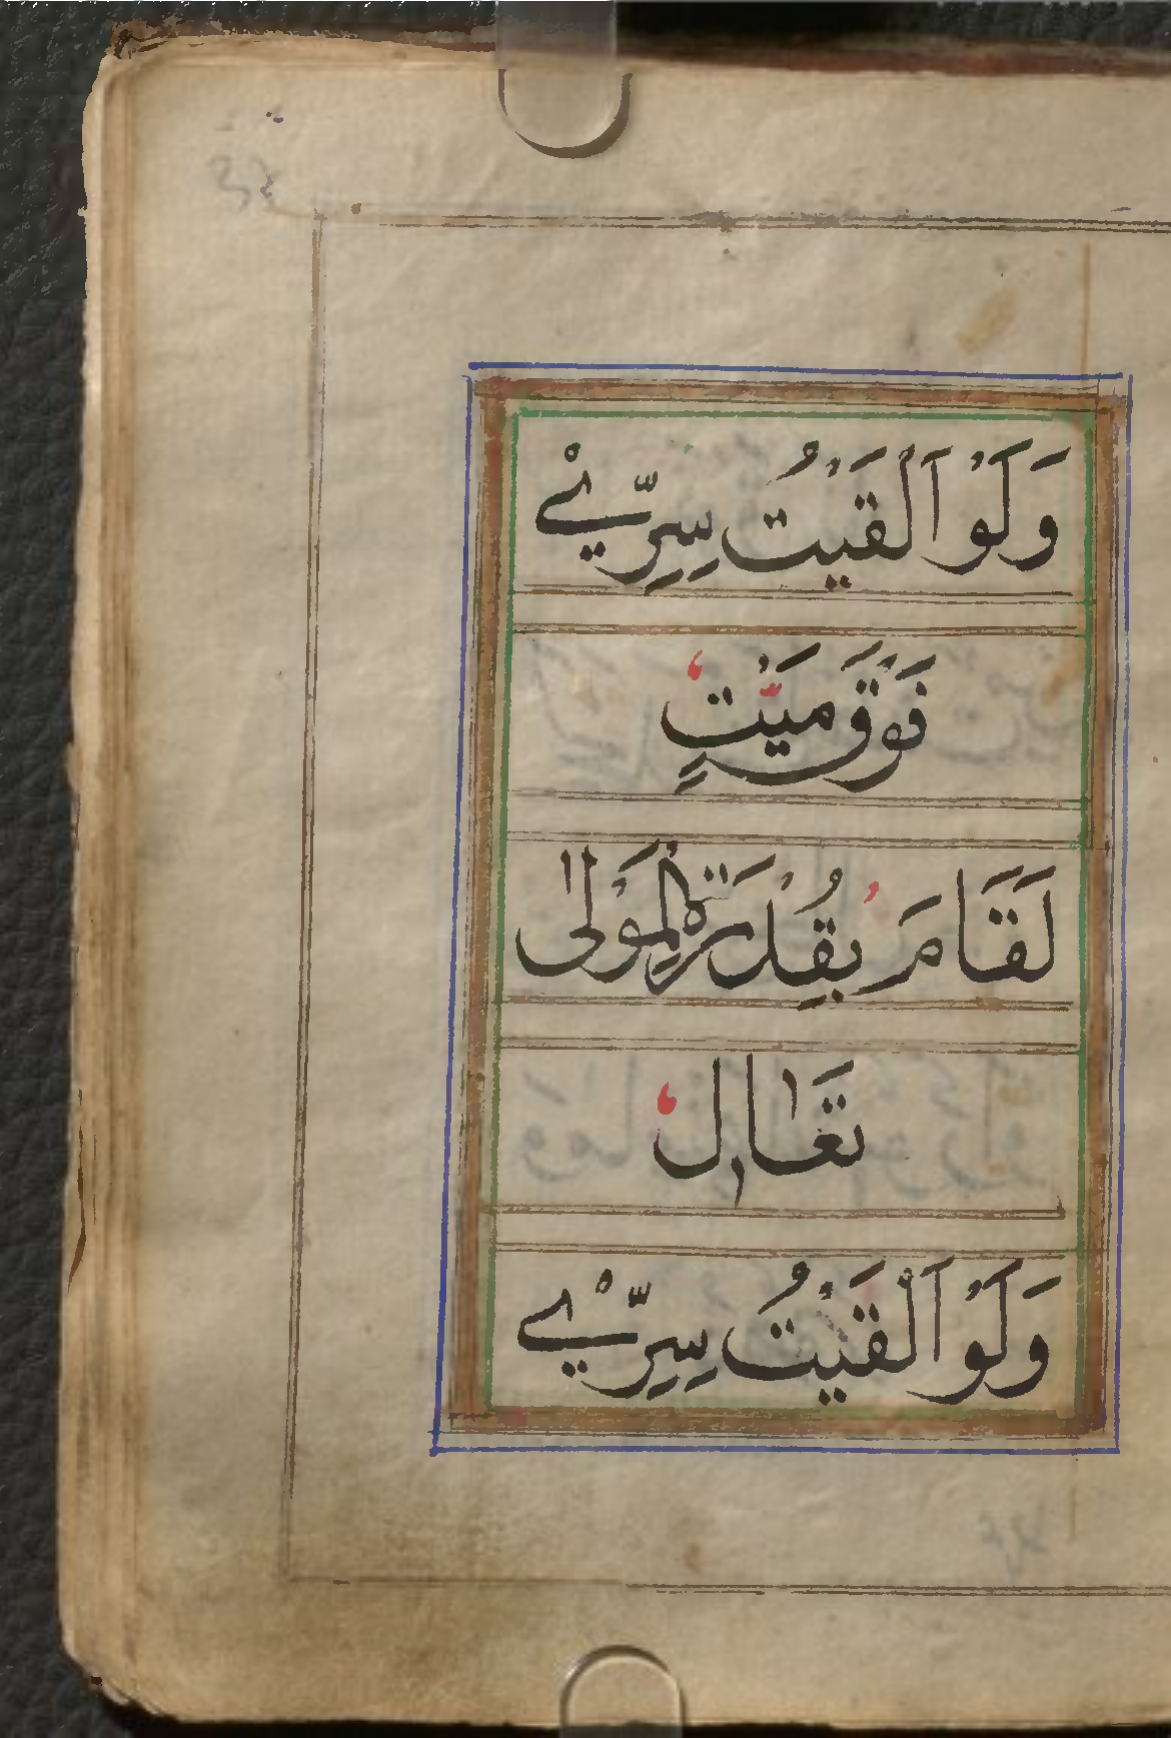 وَلَوْ اَلْقَيْتُ سِرِّيْ
فَوْقَ مَيِّتٍ
لَقَامَ بِقُدْرَةِ الْمَوْلٰى
تَعَالٰى لِ
وَلَوْ اَلْقَيْتُ سِرِّيْ